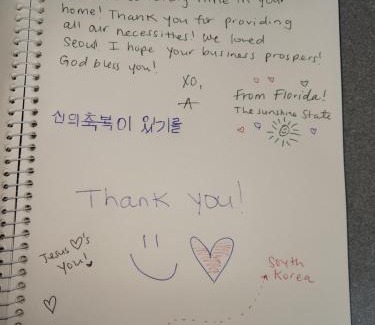 time in your
home! Thank you for providing
all our necessities! We loved
Seoul I hope your business prospers!
God bless you!
XO,
A
From Florida!
The sunshine State
신의 축복이 있기를
Thank you!
Jesus ♡'s
you!
South
Korea